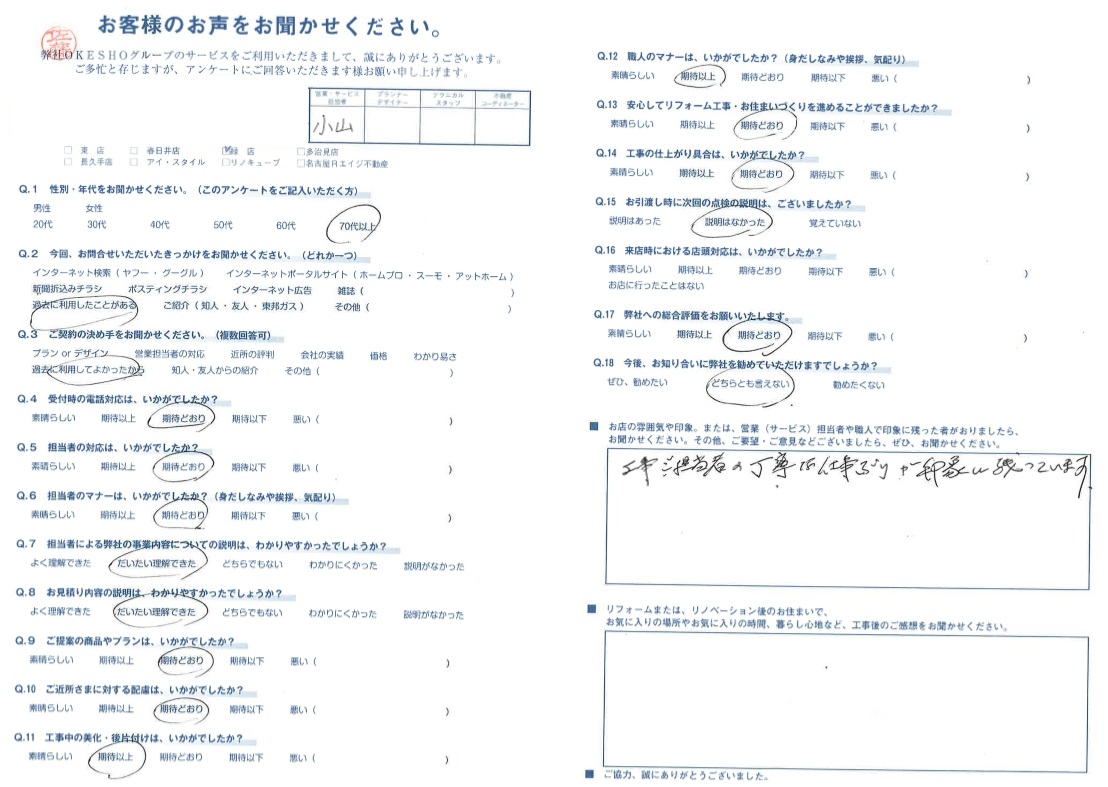 お客様のお声をお聞かせください。
佐藤
弊社OKESHOグループのサービスをご利用いただきまして、誠にありがとうございます。
ご多忙と存じますが、アンケートにご回答いただきます様お願い申し上げます。
営業・サービス担当者 プランナーデザイナー テクニカルスタッフ 不動産コーディネーター
小山
□ 東 店 □ 春日井店 ☑緑 店 □多治見店
□ 長久手店 □ アイ・スタイル □リノキューブ □名古屋Rエイジ不動産
Q.1 性別・年代をお聞かせください。（このアンケートをご記入いただく方）
男性 女性
20代 30代 40代 50代 60代 70代以上
Q.2 今回、お問合せいただいたきっかけをお聞かせください。（どれか一つ）
インターネット検索（ ヤフー ・ グーグル ） インターネットポータルサイト（ ホームプロ ・ スーモ ・ アットホーム ）
新聞折込みチラシ ポスティングチラシ インターネット広告 雑誌（ ）
過去に利用したことがある ご紹介（ 知人 ・ 友人 ・ 東邦ガス ） その他（ ）
Q.3 ご契約の決め手をお聞かせください。（複数回答可）
プラン or デザイン 営業担当者の対応 近所の評判 会社の実績 価格 わかり易さ
過去に利用してよかったから 知人・友人からの紹介 その他（ ）
Q.4 受付時の電話対応は、いかがでしたか？
素晴らしい 期待以上 期待どおり 期待以下 悪い（ ）
Q.5 担当者の対応は、いかがでしたか？
素晴らしい 期待以上 期待どおり 期待以下 悪い（ ）
Q.6 担当者のマナーは、いかがでしたか？（身だしなみや挨拶、気配り）
素晴らしい 期待以上 期待どおり 期待以下 悪い（ ）
Q.7 担当者による弊社の事業内容についての説明は、わかりやすかったでしょうか？
よく理解できた だいたい理解できた どちらでもない わかりにくかった 説明がなかった
Q.8 お見積り内容の説明は、わかりやすかったでしょうか？
よく理解できた だいたい理解できた どちらでもない わかりにくかった 説明がなかった
Q.9 ご提案の商品やプランは、いかがでしたか？
素晴らしい 期待以上 期待どおり 期待以下 悪い（ ）
Q.10 ご近所さまに対する配慮は、いかがでしたか？
素晴らしい 期待以上 期待どおり 期待以下 悪い（ ）
Q.11 工事中の美化・後片付けは、いかがでしたか？
素晴らしい 期待以上 期待どおり 期待以下 悪い（ ）
Q.12 職人のマナーは、いかがでしたか？（身だしなみや挨拶、気配り）
素晴らしい 期待以上 期待どおり 期待以下 悪い（ ）
Q.13 安心してリフォーム工事・お住まいづくりを進めることができましたか？
素晴らしい 期待以上 期待どおり 期待以下 悪い（ ）
Q.14 工事の仕上がり具合は、いかがでしたか？
素晴らしい 期待以上 期待どおり 期待以下 悪い（ ）
Q.15 お引渡し時に次回の点検の説明は、ございましたか？
説明はあった 説明はなかった 覚えていない
Q.16 来店時における店頭対応は、いかがでしたか？
素晴らしい 期待以上 期待どおり 期待以下 悪い（ ）
お店に行ったことはない
Q.17 弊社への総合評価をお願いいたします。
素晴らしい 期待以上 期待どおり 期待以下 悪い（ ）
Q.18 今後、お知り合いに弊社を勧めていただけますでしょうか？
ぜひ、勧めたい どちらとも言えない 勧めたくない
■ お店の雰囲気や印象。または、営業（サービス）担当者や職人で印象に残った者がおりましたら、
お聞かせください。その他、ご要望・ご意見などございましたら、ぜひ、お聞かせください。
工事担当者の丁寧な仕事ぶりが印象に残っています
■ リフォームまたは、リノベーション後のお住まいで、
お気に入りの場所やお気に入りの時間、暮らし心地など、工事後のご感想をお聞かせください。
■ ご協力、誠にありがとうございました。